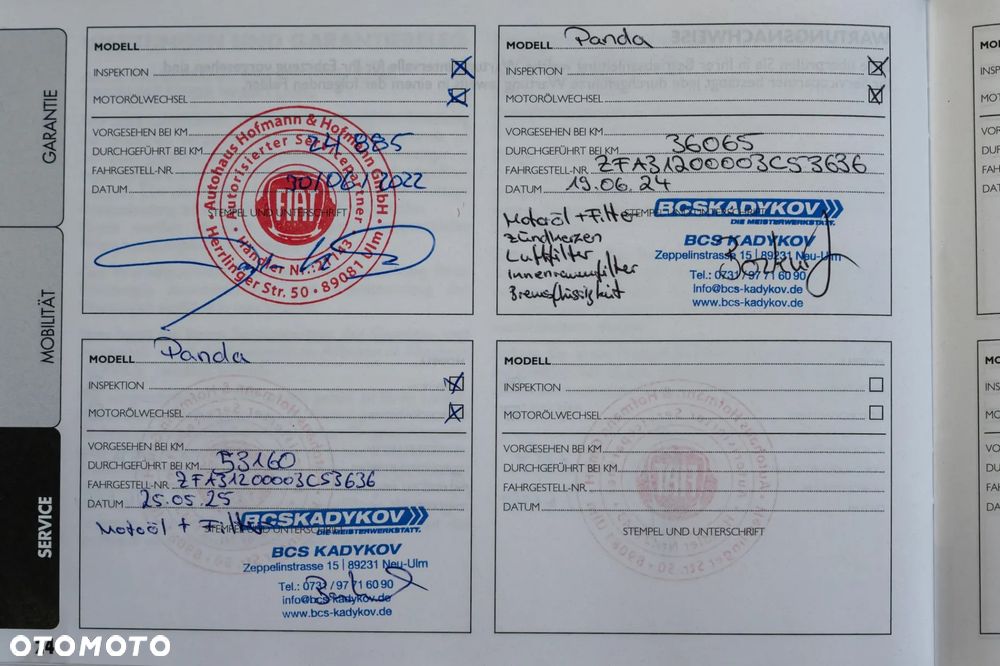 GARANTIE
MOBILITÄT
SERVICE
MODELL
INSPEKTION
MOTORÖLWECHSEL
VORGESEHEN BEI KM
DURCHGEFÜHRT BEI KM 24 885
FAHRGESTELL-NR.
DATUM 10/06/2022
STEMPEL UND UNTERSCHRIFT
Autohaus Hofmann & Hofmann GmbH
Autorisierter Servicepartner
FIAT
Händler Nr.:
Herrlinger Str. 50 · 89081 Ulm
MODELL Panda
INSPEKTION
MOTORÖLWECHSEL
VORGESEHEN BEI KM
DURCHGEFÜHRT BEI KM 36065
FAHRGESTELL-NR. ZFA31200003C53636
DATUM 19.06.24
Motoröl + Filter
Zündkerzen
Luftfilter
Innenraumfilter
Bremsflüssigkeit
BCSKADYKOV
DIE MEISTERWERKSTATT.
BCS KADYKOV
Zeppelinstrasse 15 | 89231 Neu-Ulm
Tel.: 0731 / 97 71 60 90
info@bcs-kadykov.de
www.bcs-kadykov.de
MODELL Panda
INSPEKTION
MOTORÖLWECHSEL
VORGESEHEN BEI KM
DURCHGEFÜHRT BEI KM 53160
FAHRGESTELL-NR. ZFA31200003C53636
DATUM 25.05.25
Motoröl + Filter
STEMPEL UND UNTERSCHRIFT
BCSKADYKOV
DIE MEISTERWERKSTATT.
BCS KADYKOV
Zeppelinstrasse 15 | 89231 Neu-Ulm
Tel.: 0731 / 97 71 60 90
info@bcs-kadykov.de
www.bcs-kadykov.de
MODELL
INSPEKTION
MOTORÖLWECHSEL
VORGESEHEN BEI KM
DURCHGEFÜHRT BEI KM
FAHRGESTELL-NR.
DATUM
STEMPEL UND UNTERSCHRIFT
OTOMOTO